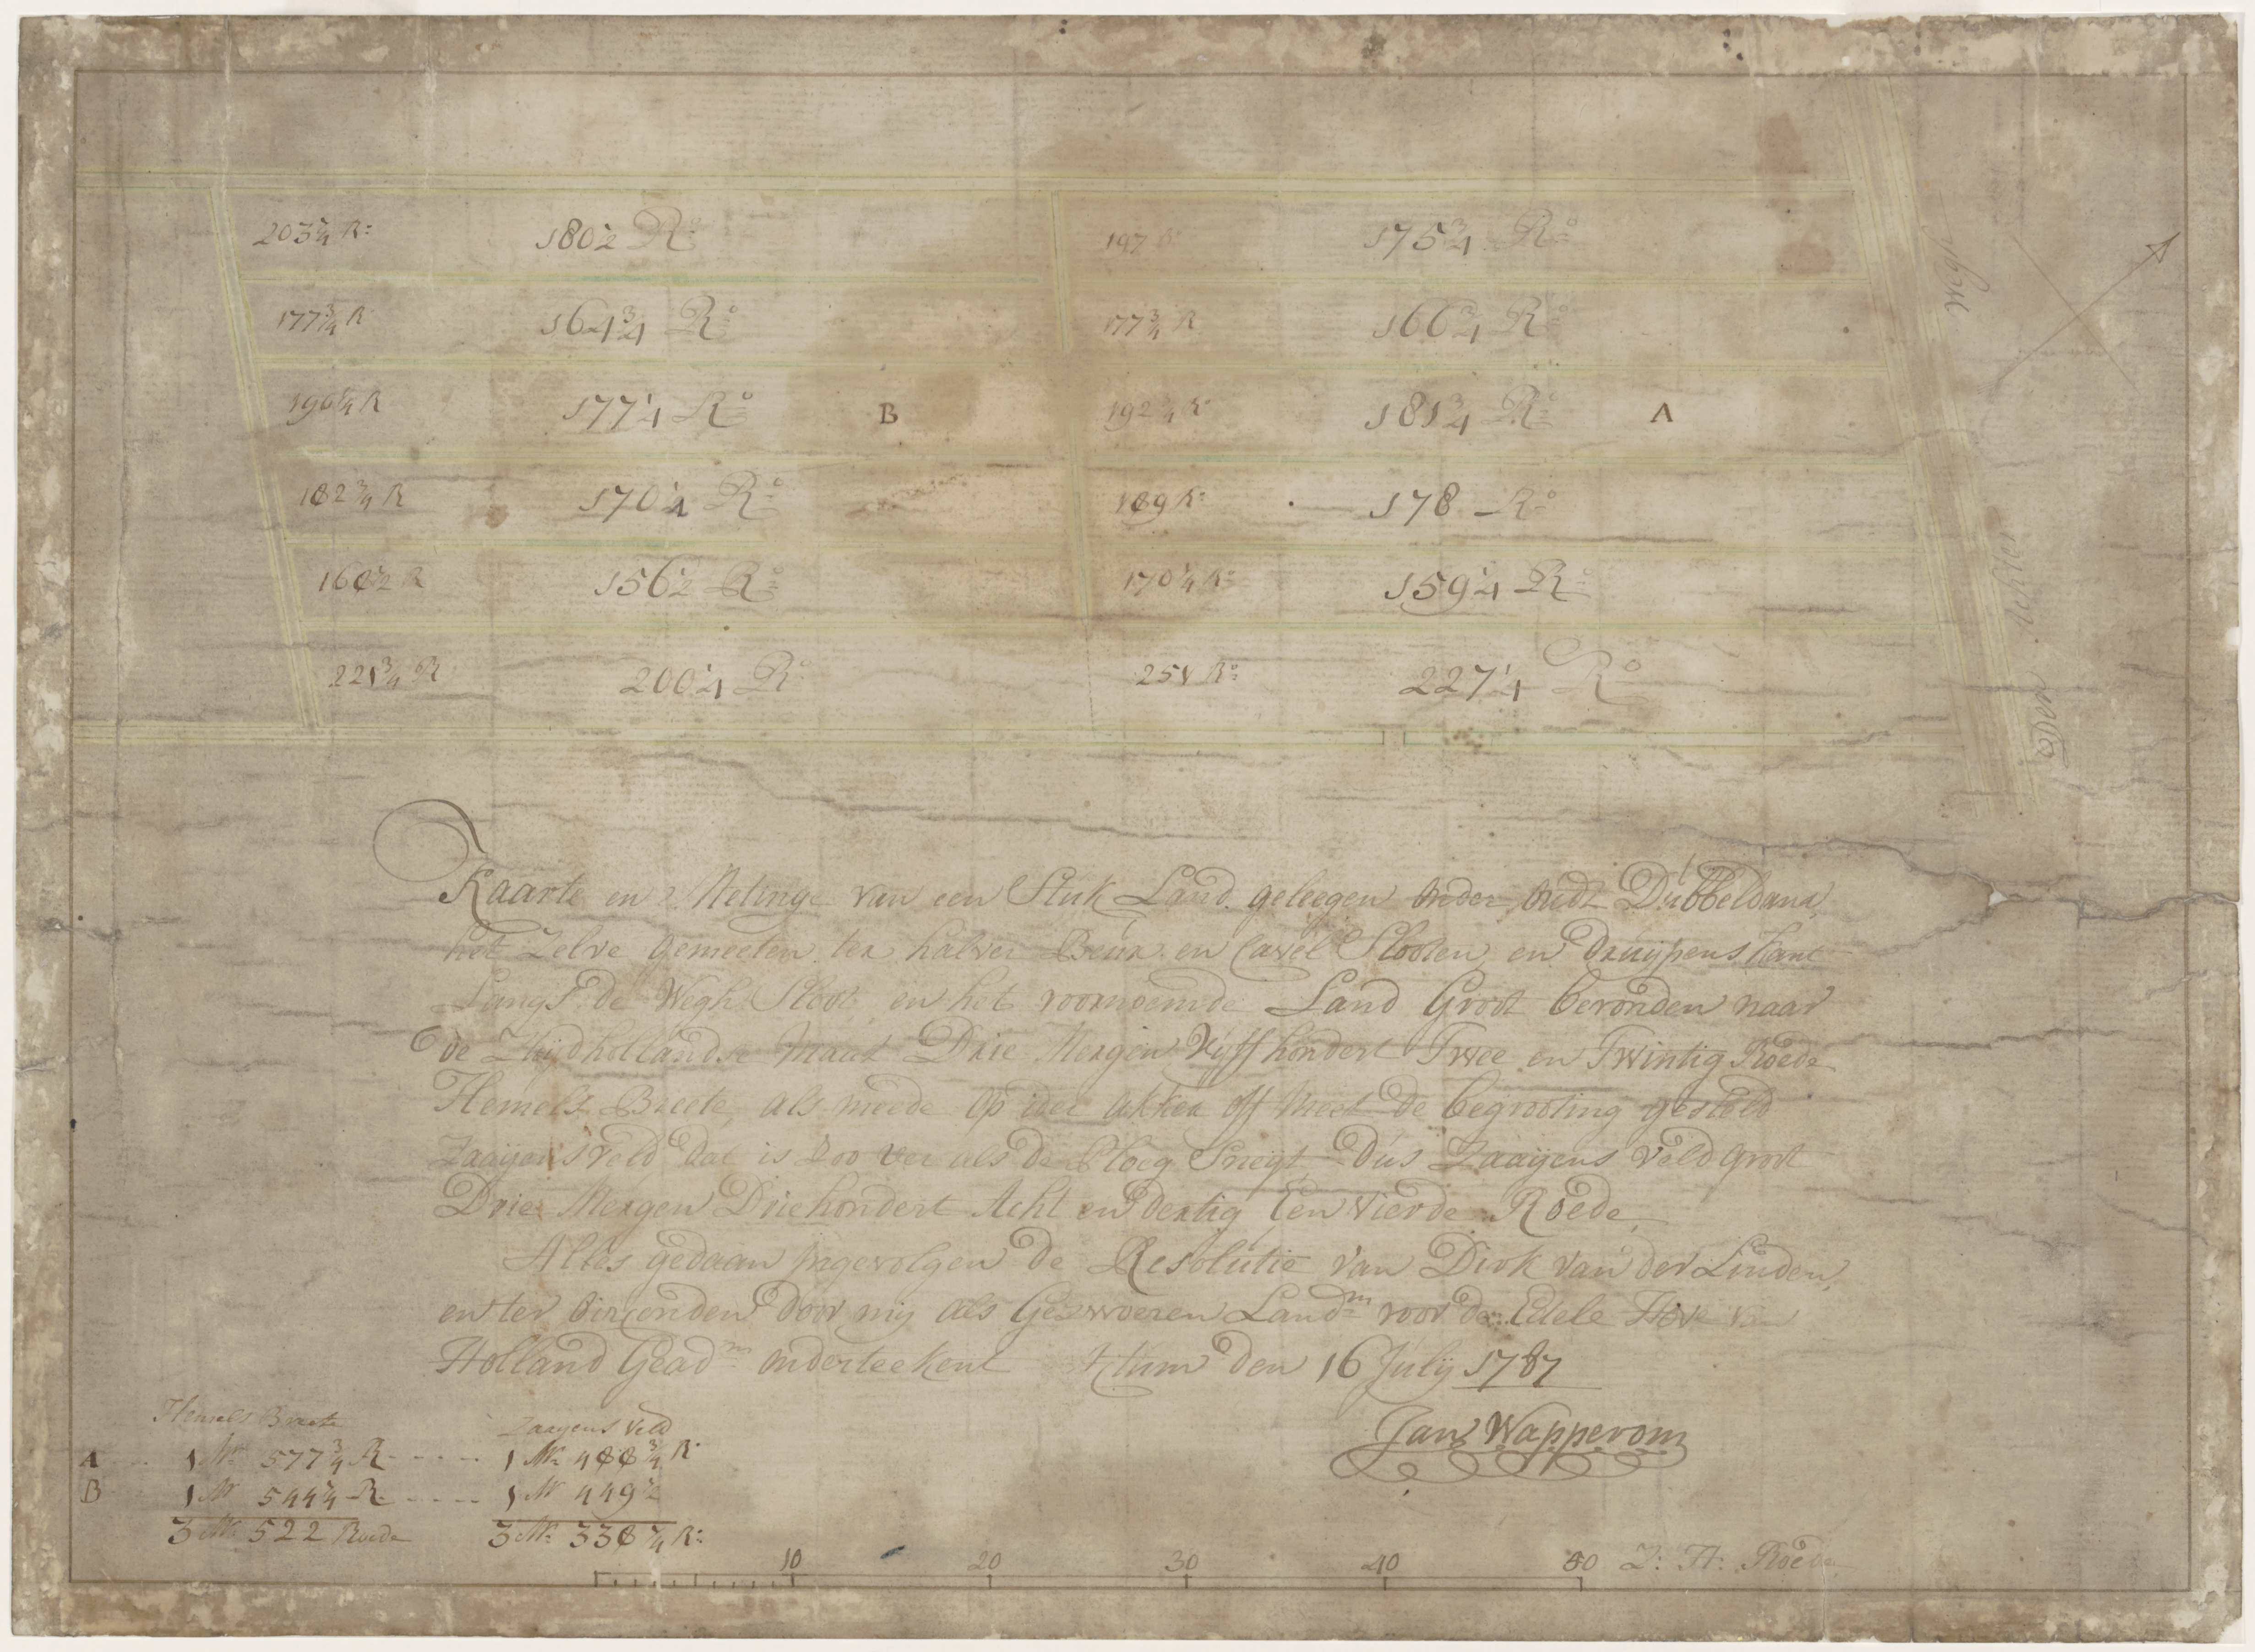 203 1/4 R: 180 1/2 R:º 197 R: 175 3/4 R:º
177 3/4 R 164 3/4 R:º 177 3/4 R 166 3/4 R:º
196 1/4 R 177 1/4 R:º B 192 R: 181 3/4 R:º A
182 3/4 R 170 1/4 R:º 189 R: 178 R:º
162 1/2 R 156 1/2 R:º 170 1/4 R: 159 1/4 R:º
221 3/4 R 200 1/4 R:º 251 Rº: 227 1/4 Rº
Den Achter Wegh
Kaarte en Metinge van een Stuk Land geleegen onder oudt Dubbeldam,
het Zelve gemeeten ter halver Beur en Cavel Slooten, en druijpens kant
Langs de Wegh Sloot, en het voornoemde Land Groot bevonden naar
de Zuijdhollandse Maat Drie Mergen Vijffhondert Twee en Twintig Roede
Hemels Breete, als meede op ider akker off Meet de begrooting gesteld
Zaaijens veld dat is zoo ver als de Ploeg Sneijt Dus Zaaijens Veld groot
Drie Mergen Driehondert Acht en dertig Een Vierde Roede
Alles gedaan ingevolgen de Resolutie van Dirk van der Linden,
en ter oirconden door mij als Geswooren Landm voor den Edele Hove van
Holland Geadm onderteekent Actum den 16 Julij 1787
Jan Wapperom
Hemels Breete Zaaijens Veld
A 1 M: 577 3/4 R 1 M: 488 3/4 R
B 1 M 544 1/4 R 1 M 449 1/2
3 M: 522 Roede 3 M: 338 1/4 R:
10 20 30 40 50 Z: H: Roede